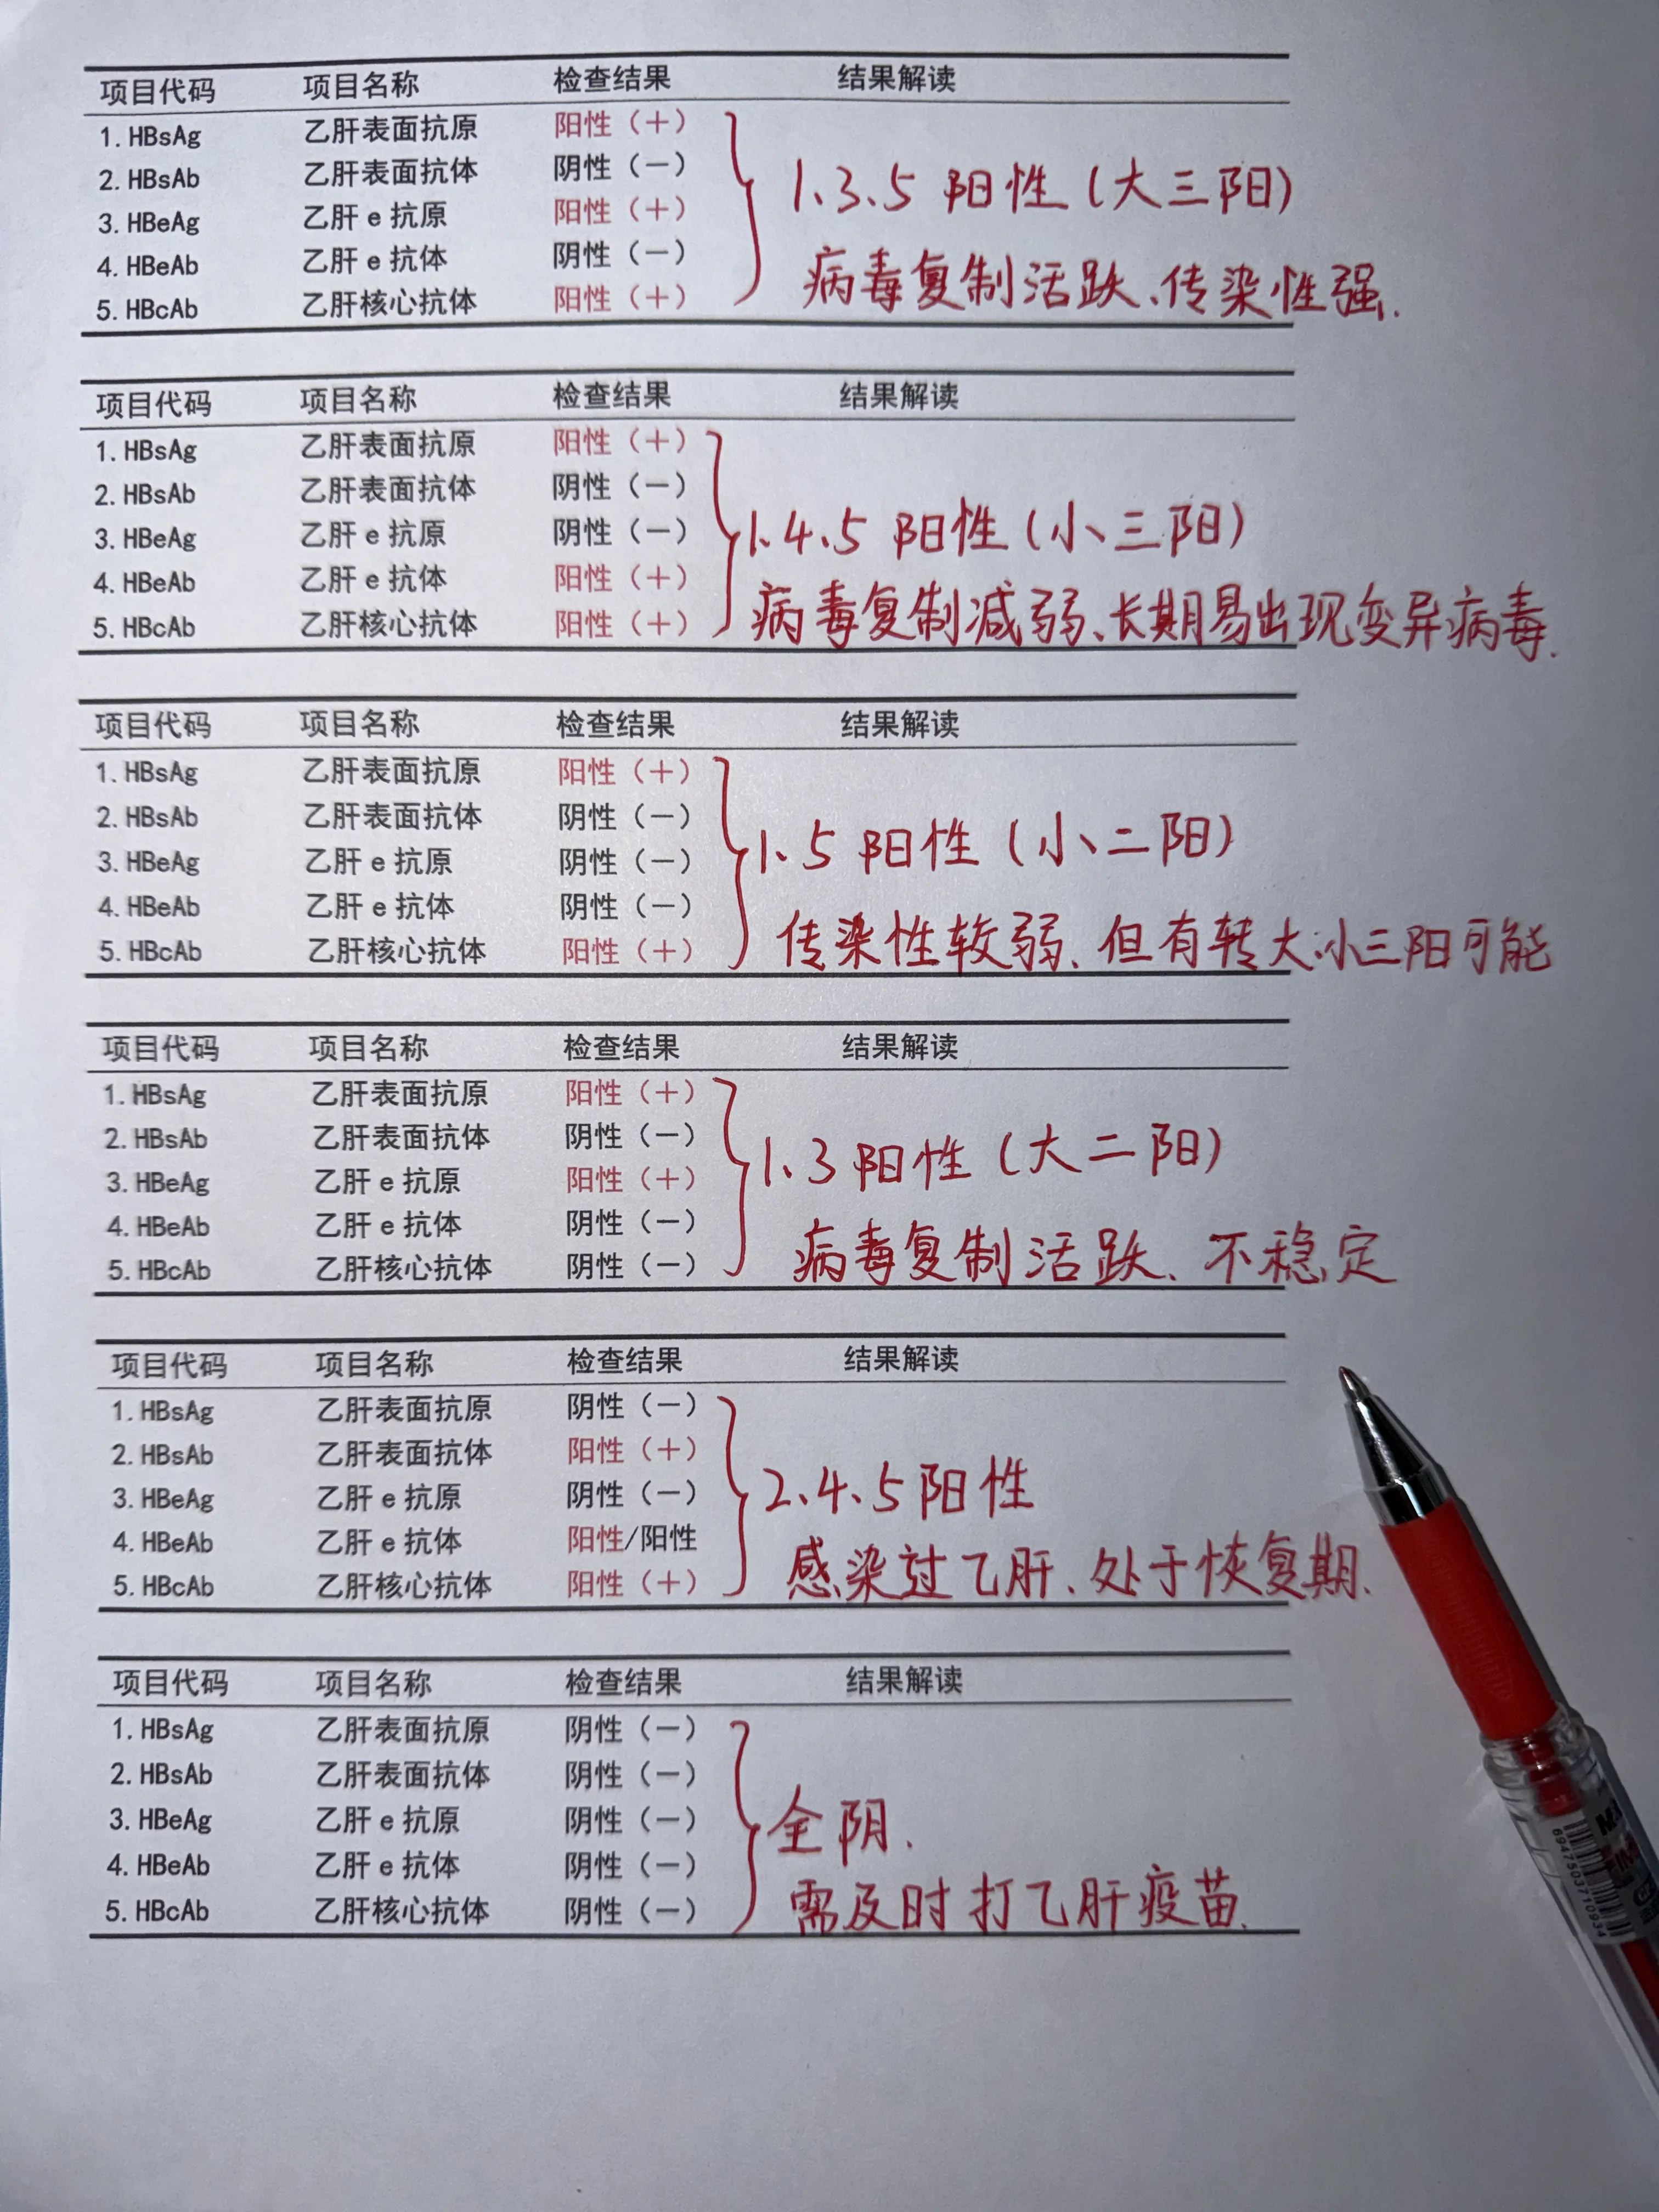 项目代码 项目名称 检查结果 结果解读
1. HBsAg 乙肝表面抗原 阳性（+）
2. HBsAb 乙肝表面抗体 阴性（—）
3. HBeAg 乙肝 e 抗原 阳性（+）
4. HBeAb 乙肝 e 抗体 阴性（—）
5. HBcAb 乙肝核心抗体 阳性（+）
1、3、5 阳性（大三阳）
病毒复制活跃、传染性强.
项目代码 项目名称 检查结果 结果解读
1. HBsAg 乙肝表面抗原 阳性（+）
2. HBsAb 乙肝表面抗体 阴性（—）
3. HBeAg 乙肝 e 抗原 阴性（—）
4. HBeAb 乙肝 e 抗体 阳性（+）
5. HBcAb 乙肝核心抗体 阳性（+）
1、4、5 阳性（小三阳）
病毒复制减弱、长期易出现变异病毒.
项目代码 项目名称 检查结果 结果解读
1. HBsAg 乙肝表面抗原 阳性（+）
2. HBsAb 乙肝表面抗体 阴性（—）
3. HBeAg 乙肝 e 抗原 阴性（—）
4. HBeAb 乙肝 e 抗体 阴性（—）
5. HBcAb 乙肝核心抗体 阳性（+）
1、5 阳性（小二阳）
传染性较弱、但有转大、小三阳可能
项目代码 项目名称 检查结果 结果解读
1. HBsAg 乙肝表面抗原 阳性（+）
2. HBsAb 乙肝表面抗体 阴性（—）
3. HBeAg 乙肝 e 抗原 阳性（+）
4. HBeAb 乙肝 e 抗体 阴性（—）
5. HBcAb 乙肝核心抗体 阴性（—）
1、3 阳性（大二阳）
病毒复制活跃、不稳定
项目代码 项目名称 检查结果 结果解读
1. HBsAg 乙肝表面抗原 阴性（—）
2. HBsAb 乙肝表面抗体 阳性（+）
3. HBeAg 乙肝 e 抗原 阴性（—）
4. HBeAb 乙肝 e 抗体 阳性/阳性
5. HBcAb 乙肝核心抗体 阳性（+）
2、4、5 阳性
感染过乙肝、处于恢复期.
项目代码 项目名称 检查结果 结果解读
1. HBsAg 乙肝表面抗原 阴性（—）
2. HBsAb 乙肝表面抗体 阴性（—）
3. HBeAg 乙肝 e 抗原 阴性（—）
4. HBeAb 乙肝 e 抗体 阴性（—）
5. HBcAb 乙肝核心抗体 阴性（—）
全阴.
需及时打乙肝疫苗.
6947503710934